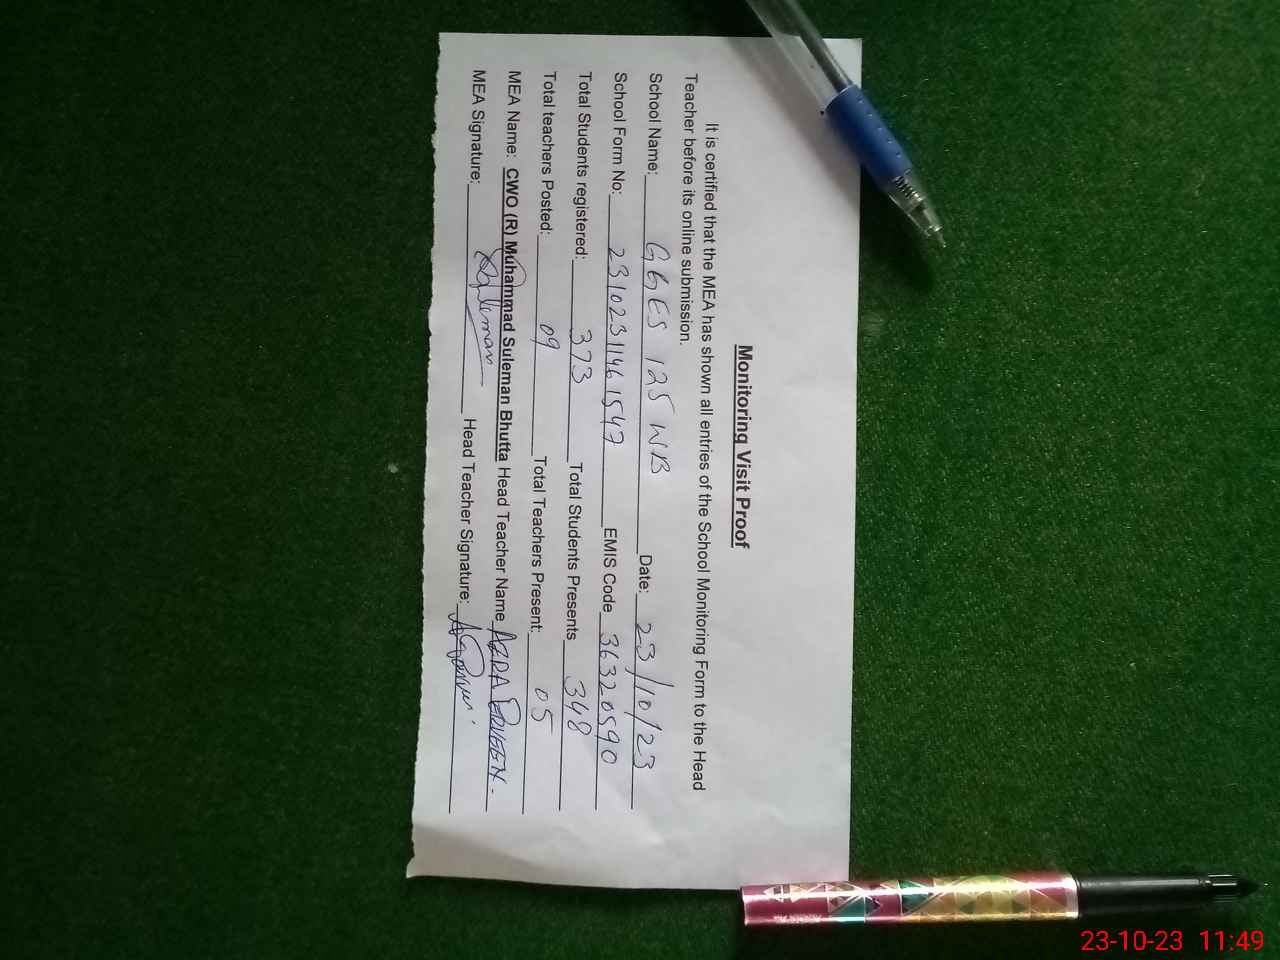 Monitoring Visit Proof
It is certified that the MEA has shown all entries of the School Monitoring Form to the Head
Teacher before its online submission.
School Name: GGES 125 WB Date: 23/10/23
School Form No: 23102311461547 EMIS Code 36320590
Total Students registered: 373 Total Students Presents 348
Total teachers Posted: 09 Total Teachers Present: 05
MEA Name: CWO (R) Muhammad Suleman Bhutta Head Teacher Name AZRA PERVEEN.
MEA Signature: Suleman Head Teacher Signature:
23-10-23 11:49